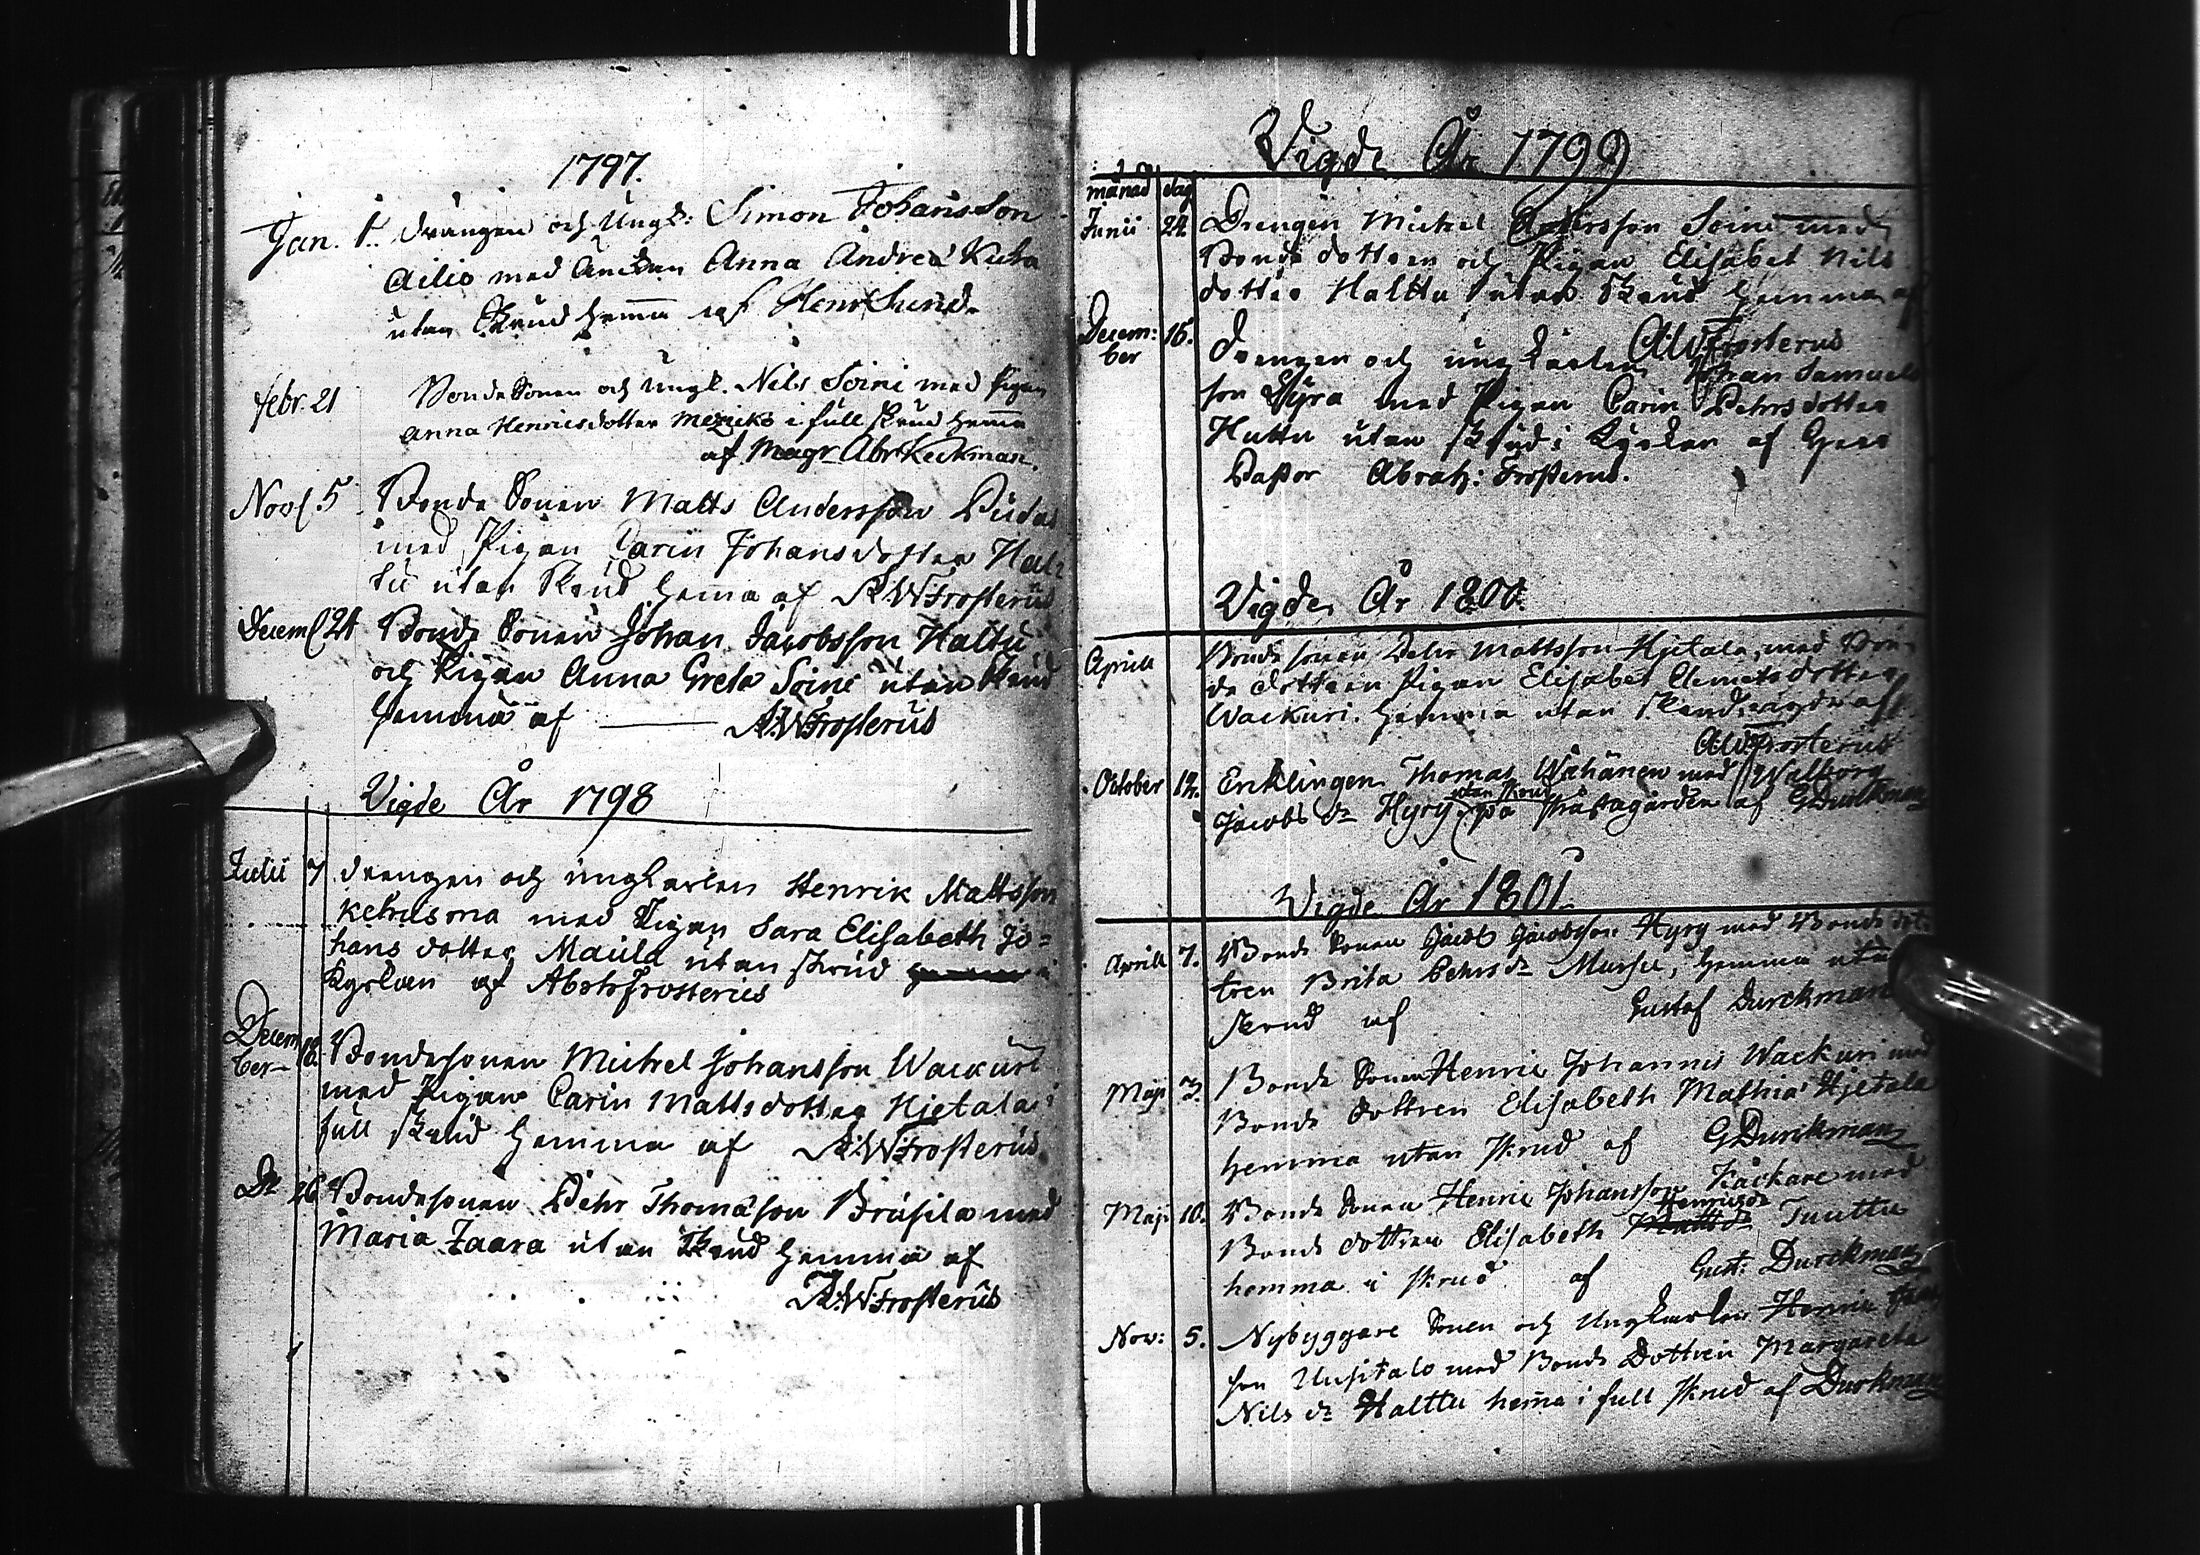 1797.
Jan. 1. drängen och Ungk: Simon Johansson
Ailio med Änckan Anna Andreæ
utan Skrud hem̄a af Henr Lund.
febr. 21 Bonde Sonen och Ungk. Nils Soini med Pigan
Anna Henricsdotter i full skrud hem̄a
af Magr. Abr Keckman.
Nov. 5 Bonde Sonen Matts Andersson Pudas
med Pigan Carin Johansdotter Hal
tu utan Skrud hem̄a af A:W:Frosterus
Decem 24 Bonde Sonen Johan Jacobsson Haltu
och Pigan Anna Greta Soini utan Skrud
hemma af A:W:Frosterus
Vigde År 1798
Julii 7 drengen och ungkarlen Henrik Mattsson
Kehusma med Pigan Sara Elisabeth Jo=
hans dotter Maula utan skrud i
Kyrkan af Abrh Frosterus
Decem
ber 18. Bondesonen Michel Johansson Wackuri
med Pigan Carin Matts dotter Hjetala i
full Skrud hemma af A:W:Frosterus
Do 26 Bondesonen Pehr Thomasson Brusila med
Maria Zaara utan Skrud hemma af
A:W:Frosterus
Vigde År 1799
månad dag
Junii 24 Drengen Michel Andersson Soini med
Bonde dottren och Pigan Elisabet Nils
dotter Halttu utan Skrud hemma af
AWFrosterus
Decem:
ber 16. Drengen och ungkarlen Johan Samuels
son Syra med Pigan Carin Pehrsdotter
Huttu utan skrud i Kyrkan af Herr
Pastor Abrah: Frosterus.
Vigde År 1800.
Aprill Bonde sonen Pehr Mattsson Hjetala, med Bon-
de dottren Pigan Elisabet Clemetsdotter
Wackuri. hemma utan Skrud, vigde af
AWFrosterus
October 12. Enklingen Thomas Wähänen med Walborg
utan skrud
Jacobs dr Hyry på Prästagården af GDurckman
Vigde År 1801.
Aprill 7. Bonde Sonen Jacob Jacobsson Hyry med Bonde dot
tren Brita Pehrs dr Mursu, hemma utan
skrud af Gustaf Durckman
Maji 3. Bonde Sonen Henric Johannis Wackuri med
Bonde dottren Elisabeth Mathiæ Hjetala
hemma utan skrud af GDurckman
Maji 10. Bonde Sonen Henric Johansson Kåckare med
Henricsdr
Bonde dottren Elisabeth Matts dr Tuuttu
hemma i skrud af Gust: Durckman
Nov: 5. Nybyggare Sonen och Ungkarlen Henric
son Uusitalo med Bonde Dottren Margareta
Nils dr Halttu hem̄a i full skrud af Durckman